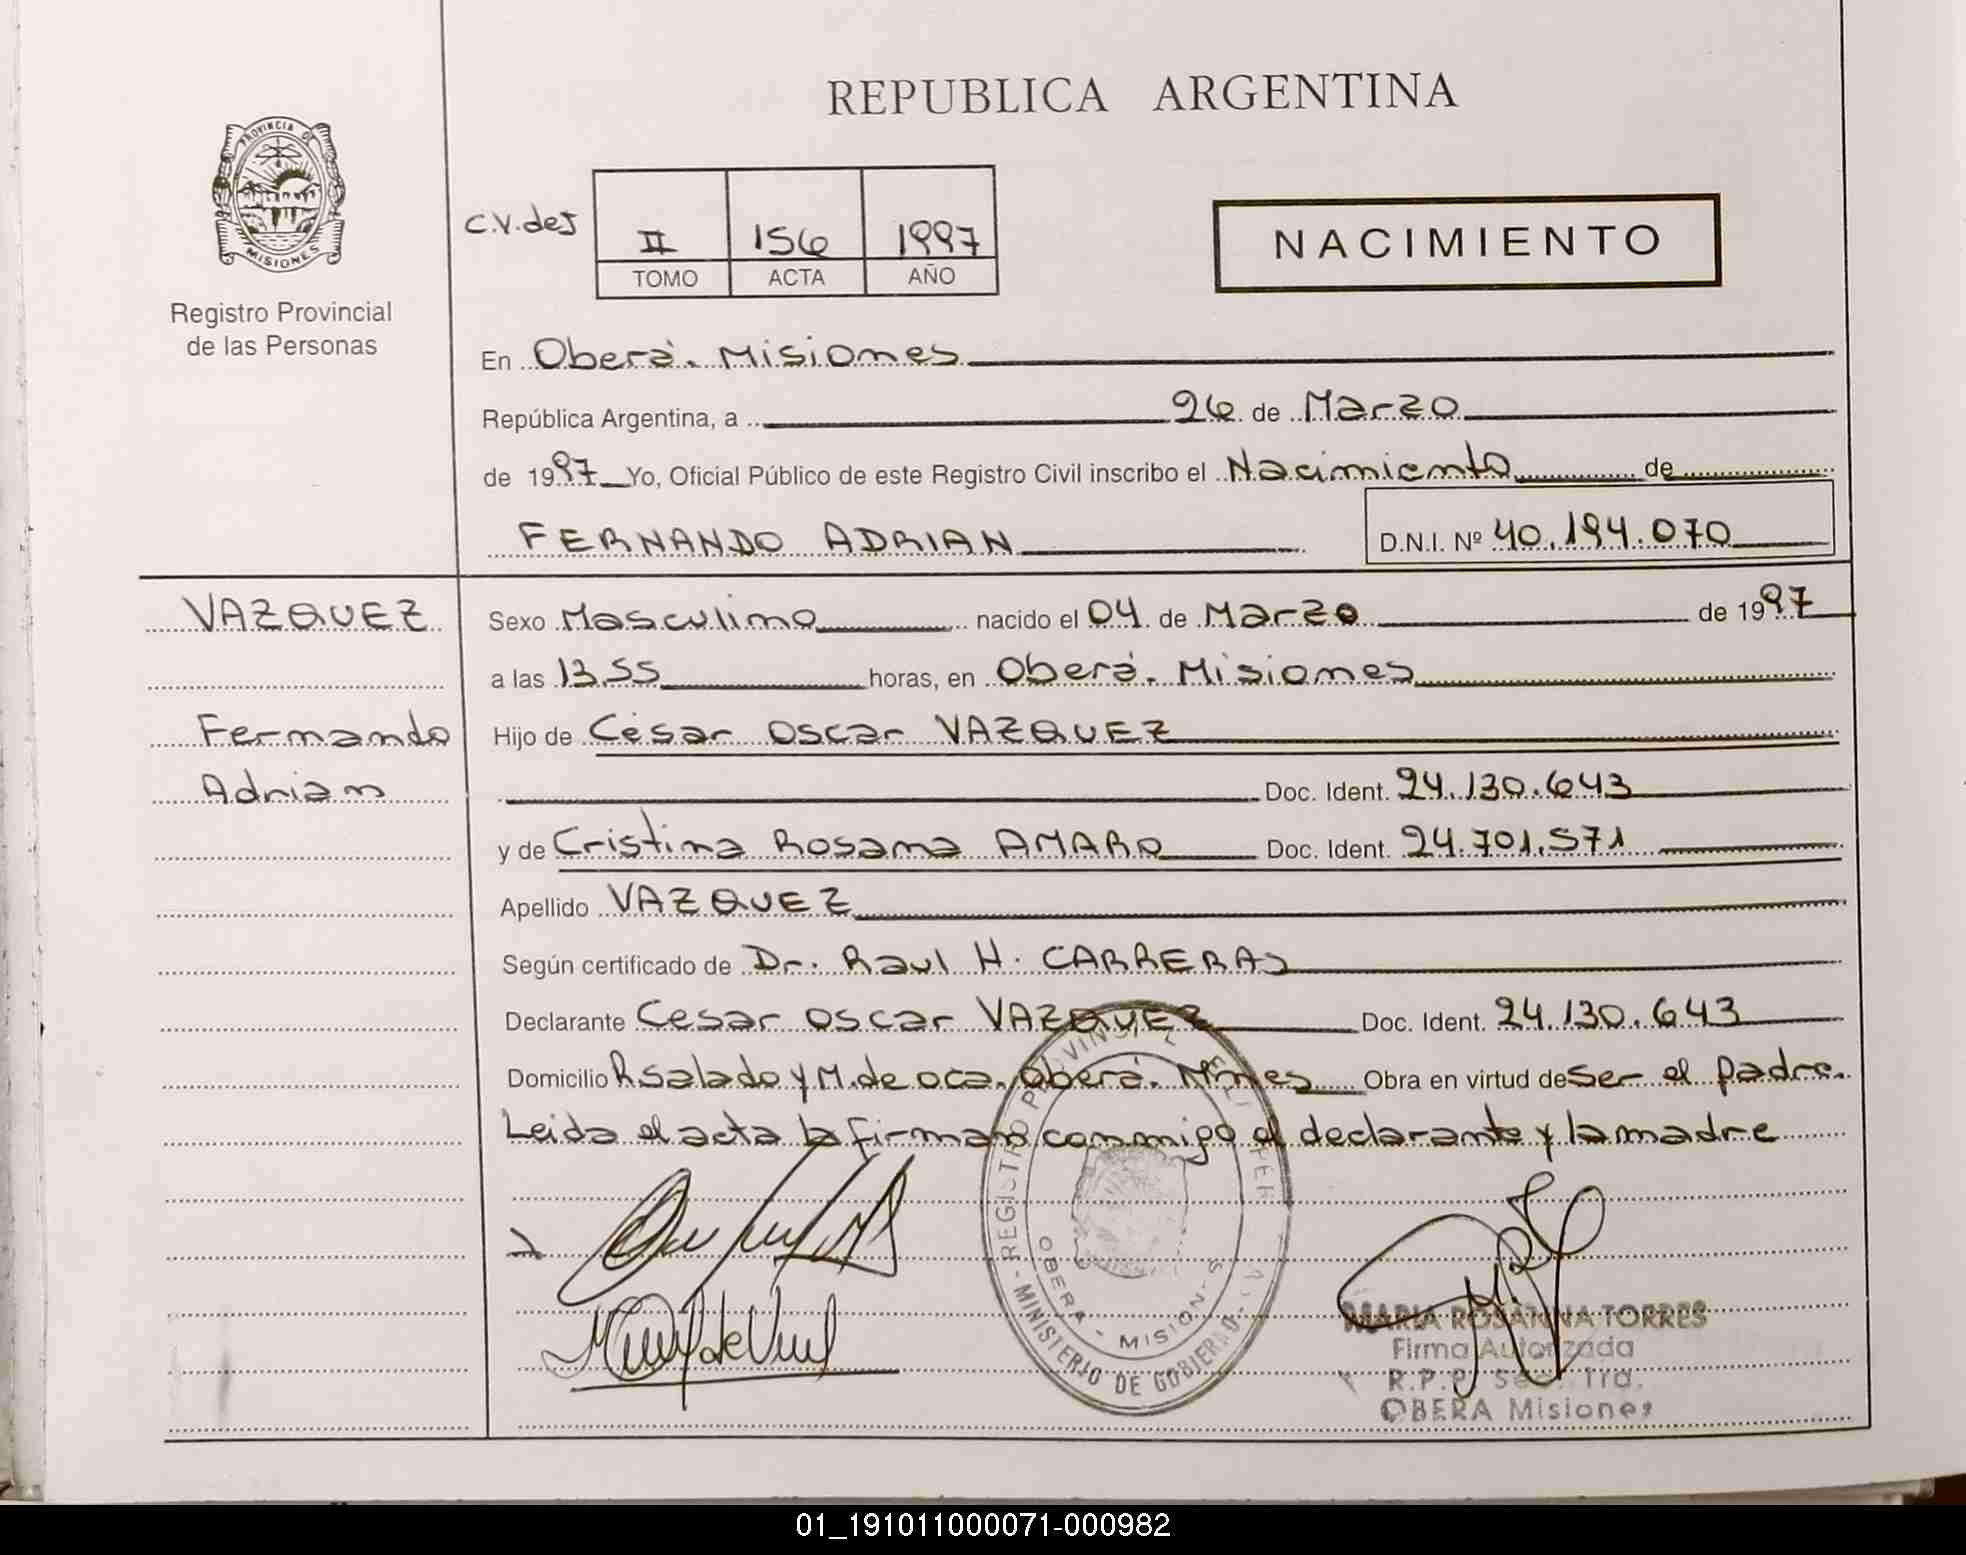 REPUBLICA ARGENTINA
PROVINCIA DE
MISIONES
Registro Provincial
de las Personas
C.V.des
II 156 1997
TOMO ACTA AÑO
NACIMIENTO
En Oberá. Misiones
República Argentina, a 26 de Marzo
de 1997 Yo, Oficial Público de este Registro Civil inscribo el Nacimiento de
FERNANDO ADRIAN D.N.I. Nº 40.194.070
VAZQUEZ
Fernando
Adrian
Sexo Masculino nacido el 04 de Marzo de 1997
a las 13.55 horas, en Oberá. Misiones
Hijo de César Oscar VAZQUEZ
Doc. Ident. 24.130.643
y de Cristina Rosana AMARO Doc. Ident. 24.701.571
Apellido VAZQUEZ
Según certificado de Dr. Raul H. CARRERAS
Declarante Cesar Oscar VAZQUEZ Doc. Ident. 24.130.643
Domicilio R.salado y M.de oca. Oberá. Mnes Obra en virtud de Ser el padre.
Leida el acta la firman conmigo el declarante y la madre
REGISTRO PROVINSIAL DE LAS PER
OBERA - MISIONES
MINISTERIO DE GOBIERNO
MARIA ROSANNA TORRES
Firma Autorizada
R.P.P. Sec. 1ra.
OBERA Misiones
01_191011000071-000982